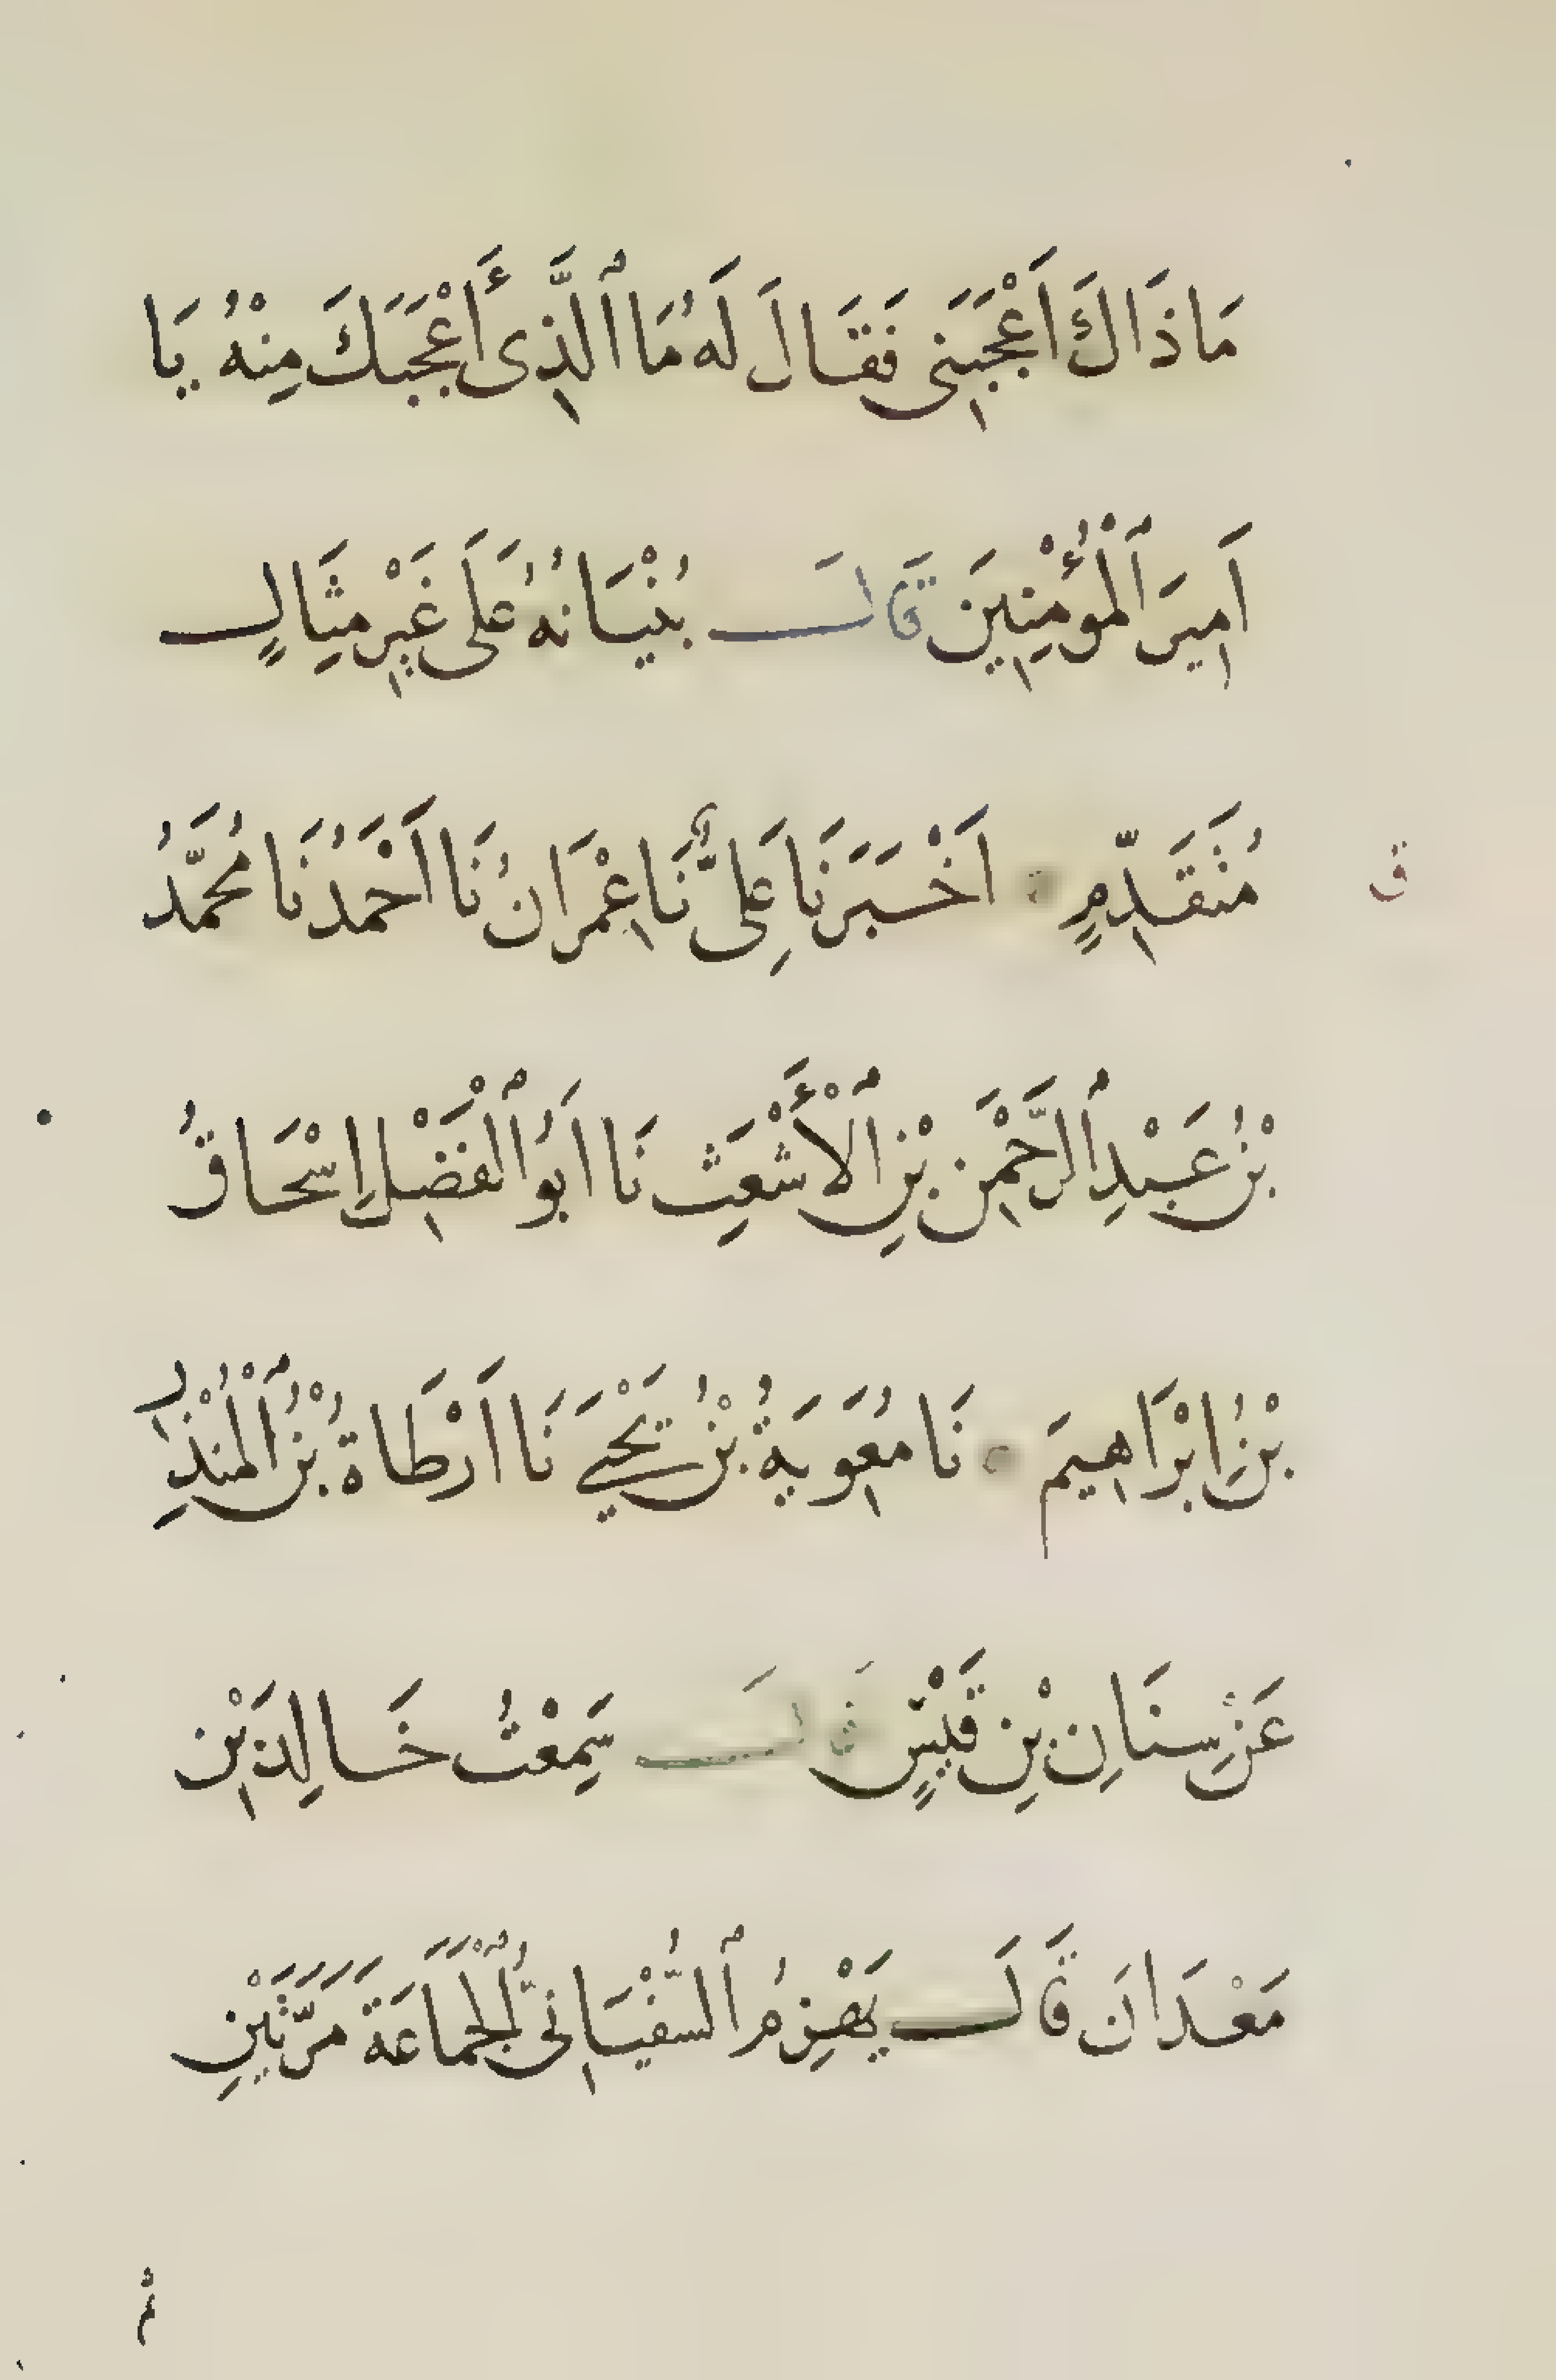 مَا ذَاكَ اَعْجَبَنِي فَقَالَ لَهُ مَا ٱلَّذِي أَعْجَبَكَ مِنْهُ يَا
اَمِيرَ ٱلْمُؤْمِنِينَ قَالَ بُنْيَانُهُ عَلَى غَيْرِ مِثَالٍ
مُتَقَدِّمٍ اَخْبَرَنَا عَلِيٌّ نَا عِمْرَانُ نَا اَحْمَدُ نَا مُحَمَّدُ
ق
بْنُ عَبْدِ ٱلرَّحْمٰنِ بْنِ ٱلْأَشْعَثِ نَا اَبُو ٱلْفَضْلِ إِسْحَاقُ
بْنُ إِبْرَاهِيمَ نَا مُعٰوِيَةُ بْنُ يَحْيَى نَا اَرْطَاةُ بْنُ ٱلْمُنْذِرِ
عَنْ سِنَانِ بْنِ قَيْسٍ قَالَ سَمِعْتُ خَالِدَ بْنَ
مَعْدَانَ قَالَ يَهْزِمُ ٱلسُّفْيَانِيُّ ٱلْجَمَاعَةَ مَرَّتَيْنِ
ثُمَّ